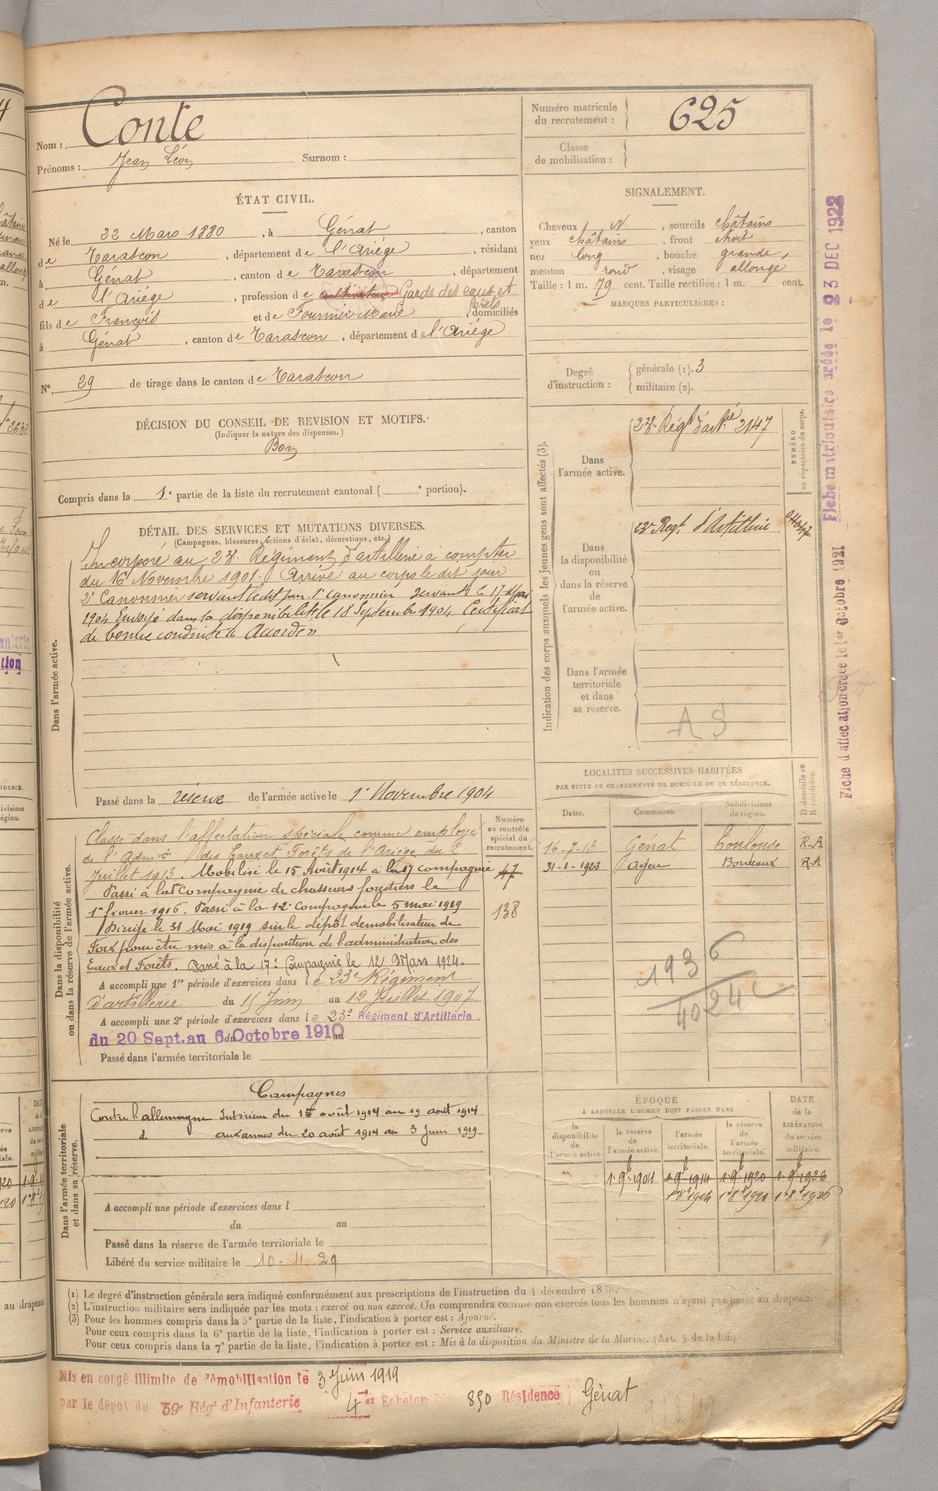 Nom : Conte
Prénoms : Jean Léon Surnom :
Numéro matricule du recrutement : 625
Classe de mobilisation :
ÉTAT CIVIL.
Né le 22 Mars 1880, à Génat, canton
de Tarascon, département de l'Ariège, résidant
à Génat, canton de Tarascon, département
de l'Ariège, profession de cultivateur Garde des eaux et forêts
fils de François et de Fournié Marie, domiciliés
à Génat, canton de Tarascon, département de l'Ariège
N° 29 de tirage dans le canton de Tarascon
DÉCISION DU CONSEIL DE REVISION ET MOTIFS.
(Indiquer la nature des dispenses.)
Bon
Compris dans la 1e partie de la liste du recrutement cantonal ( e portion).
SIGNALEMENT.
Cheveux N, sourcils châtains
yeux châtains, front étroit
nez long, bouche grande,
menton rond, visage allongé
Taille : 1 m. 79 cent. Taille rectifiée : 1 m. cent.
MARQUES PARTICULIÈRES :
Degré d'instruction : générale (1). 3
militaire (2).
DÉTAIL DES SERVICES ET MUTATIONS DIVERSES.
(Campagnes, blessures, actions d'éclat, décorations, etc.)
Dans l'armée active.
Incorporé au 23e Régiment d'artillerie à compter
du 16 Novembre 1901. Arrivé au corps le dit jour
2e Canonnier servant ledit jour. 1er Canonnier servant le 17
1904 Envoyé dans la disponibilité le 18 Septembre 1904 Certificat
de bonne conduite « Accordé »
Passé dans la réserve de l'armée active le 1er Novembre 1904
Indication des corps auxquels les jeunes gens sont affectés (3).
NUMÉRO au répertoire du corps.
Dans l'armée active.
23e Régt d'artie 2147
Dans la disponibilité ou dans la réserve de l'armée active.
23e Regt d'Artillerie
Dans l'armée territoriale et dans sa réserve.
A S
Dans la disponibilité ou dans la réserve de l'armée active.
Numéro au contrôle spécial du recrutement.
47
138
Classé dans l'affectation spéciale comme employé
de l'Admon des Eaux et Forêts de l'Ariège du 2
Juillet 1913. Mobilisé le 15 Août 1914 à la 17 compagnie
Passé à la Compagnie de chasseurs forestiers le
1er février 1916. Passé à la 12e Compagnie le 5 mai 1919
Dirigé le 31 Mai 1919 sur le dépôt démobilisateur de
Foix pour être mis à la disposition de l'administration des
Eaux et Forêts. Passé à la 17e Compagnie le 12 Mars 1924.
A accompli une 1re période d'exercices dans le 23e Régiment
d'artillerie du 15 Juin au 12 Juillet 1907
A accompli une 2e période d'exercices dans le 23e Régiment d'Artillerie
du 20 Sept. au 6 Octobre 1910
Passé dans l'armée territoriale le
LOCALITÉS SUCCESSIVES HABITÉES
PAR SUITE DE CHANGEMENTS DE DOMICILE OU DE RÉSIDENCE.
Dates. Communes. Subdivisions de région. D domicile ou R résidence.
16-7-13 Génat Toulouse R.A
31-1-1923 Agen Bordeaux RA
1936
4024
Dans l'armée territoriale et dans sa réserve.
Campagnes
Contre l'allemagne Intérieur du 15 août 1914 au 19 août 1914
d° aux armées du 20 août 1914 au 3 Juin 1919
A accompli une période d'exercices dans l
du au
Passé dans la réserve de l'armée territoriale le
Libéré du service militaire le 10. 11. 29
ÉPOQUE
À LAQUELLE L'HOMME DOIT PASSER DANS
la disponibilité de l'armée active. la réserve de l'armée active. l'armée territoriale. la réserve de l'armée territoriale.
DATE de la LIBÉRATION du service militaire.
1.9b.1904 1.9b.1914 1.9b.1920 1.9b.1926
1.8b.1914 1.8b.1920 1.8b.1926
(1) Le degré d'instruction générale sera indiqué conformément aux prescriptions de l'instruction du 4 décembre
(2) L'instruction militaire sera indiquée par les mots : exercé ou non exercé. On comprendra comme non exercés tous les hommes n'ayant pas passé au drapeau.
(3) Pour les hommes compris dans la 5e partie de la liste, l'indication à porter est : Ajourné.
Pour ceux compris dans la 6e partie de la liste, l'indication à porter est : Service auxiliaire.
Pour ceux compris dans la 7e partie de la liste, l'indication à porter est : Mis à la disposition du Ministre de la Marine. (Art. 4 de la loi.)
Mis en congé illimité de démobilisation le 3 Juin 1919
par le dépôt du 59e Régt d'Infanterie 4er Echelon 850 Résidence Génat
Fiche matriculaire créée le 23 DEC 1922
Fiche d'affectation créée le 1er Octobre 1921